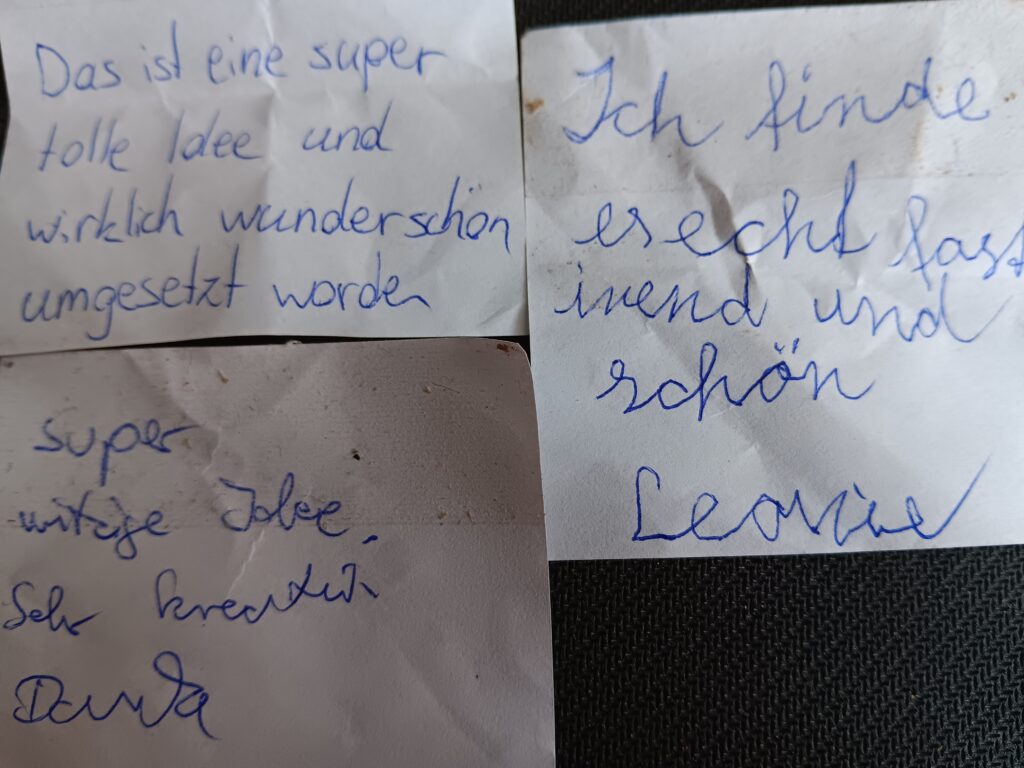 Das ist eine super
tolle Idee und
wirklich wunderschön
umgesetzt worden
Ich finde
es echt fast
inend und
schön
Leonie
super
witzige Idee.
Sehr kreativ